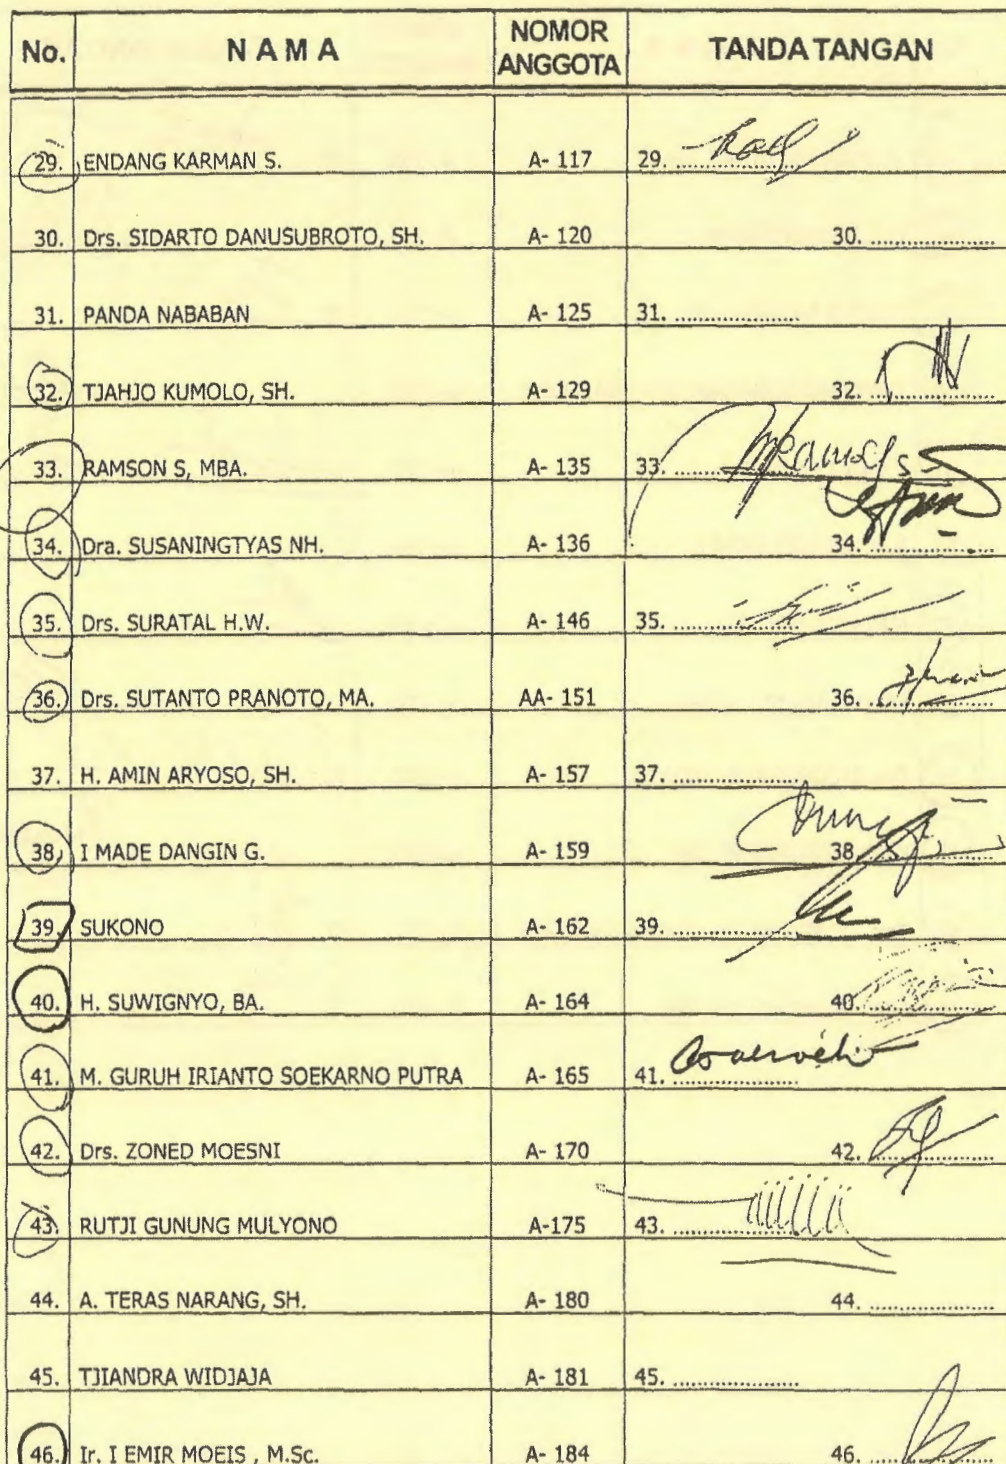 No. N A M A NOMOR ANGGOTA TANDA TANGAN
29. ENDANG KARMAN S. A- 117 29. ....................
30. Drs. SIDARTO DANUSUBROTO, SH. A- 120 30. ....................
31. PANDA NABABAN A- 125 31. ....................
32. TJAHJO KUMOLO, SH. A- 129 32. ....................
33. RAMSON S, MBA. A- 135 33. ....................
34. Dra. SUSANINGTYAS NH. A- 136 34. ....................
35. Drs. SURATAL H.W. A- 146 35. ....................
36. Drs. SUTANTO PRANOTO, MA. AA- 151 36. ....................
37. H. AMIN ARYOSO, SH. A- 157 37. ....................
38. I MADE DANGIN G. A- 159 38. ....................
39. SUKONO A- 162 39. ....................
40. H. SUWIGNYO, BA. A- 164 40. ....................
41. M. GURUH IRIANTO SOEKARNO PUTRA A- 165 41. ....................
42. Drs. ZONED MOESNI A- 170 42. ....................
43. RUTJI GUNUNG MULYONO A-175 43. ....................
44. A. TERAS NARANG, SH. A- 180 44. ....................
45. TJIANDRA WIDJAJA A- 181 45. ....................
46. Ir. I EMIR MOEIS , M.Sc. A- 184 46. ....................